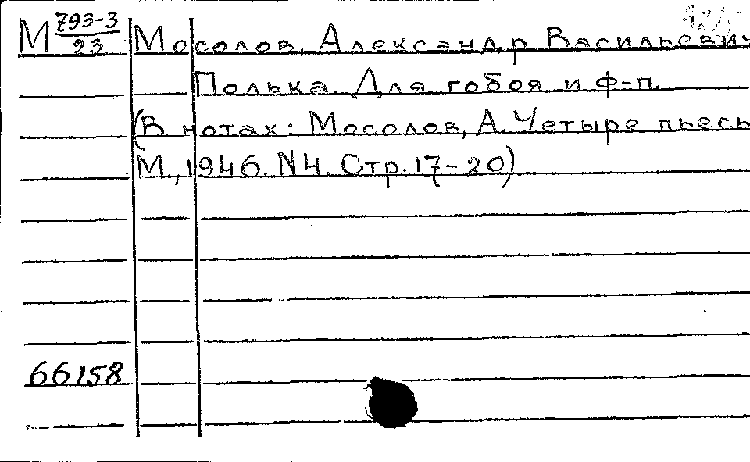 М 793-3/23 Мосолов, Александр Васильевич
Полька. Для гобоя и ф-п.
(В нотах: Мосолов, А. Четыре пьесы
М., 1946. N4. Стр. 17-20)
66158